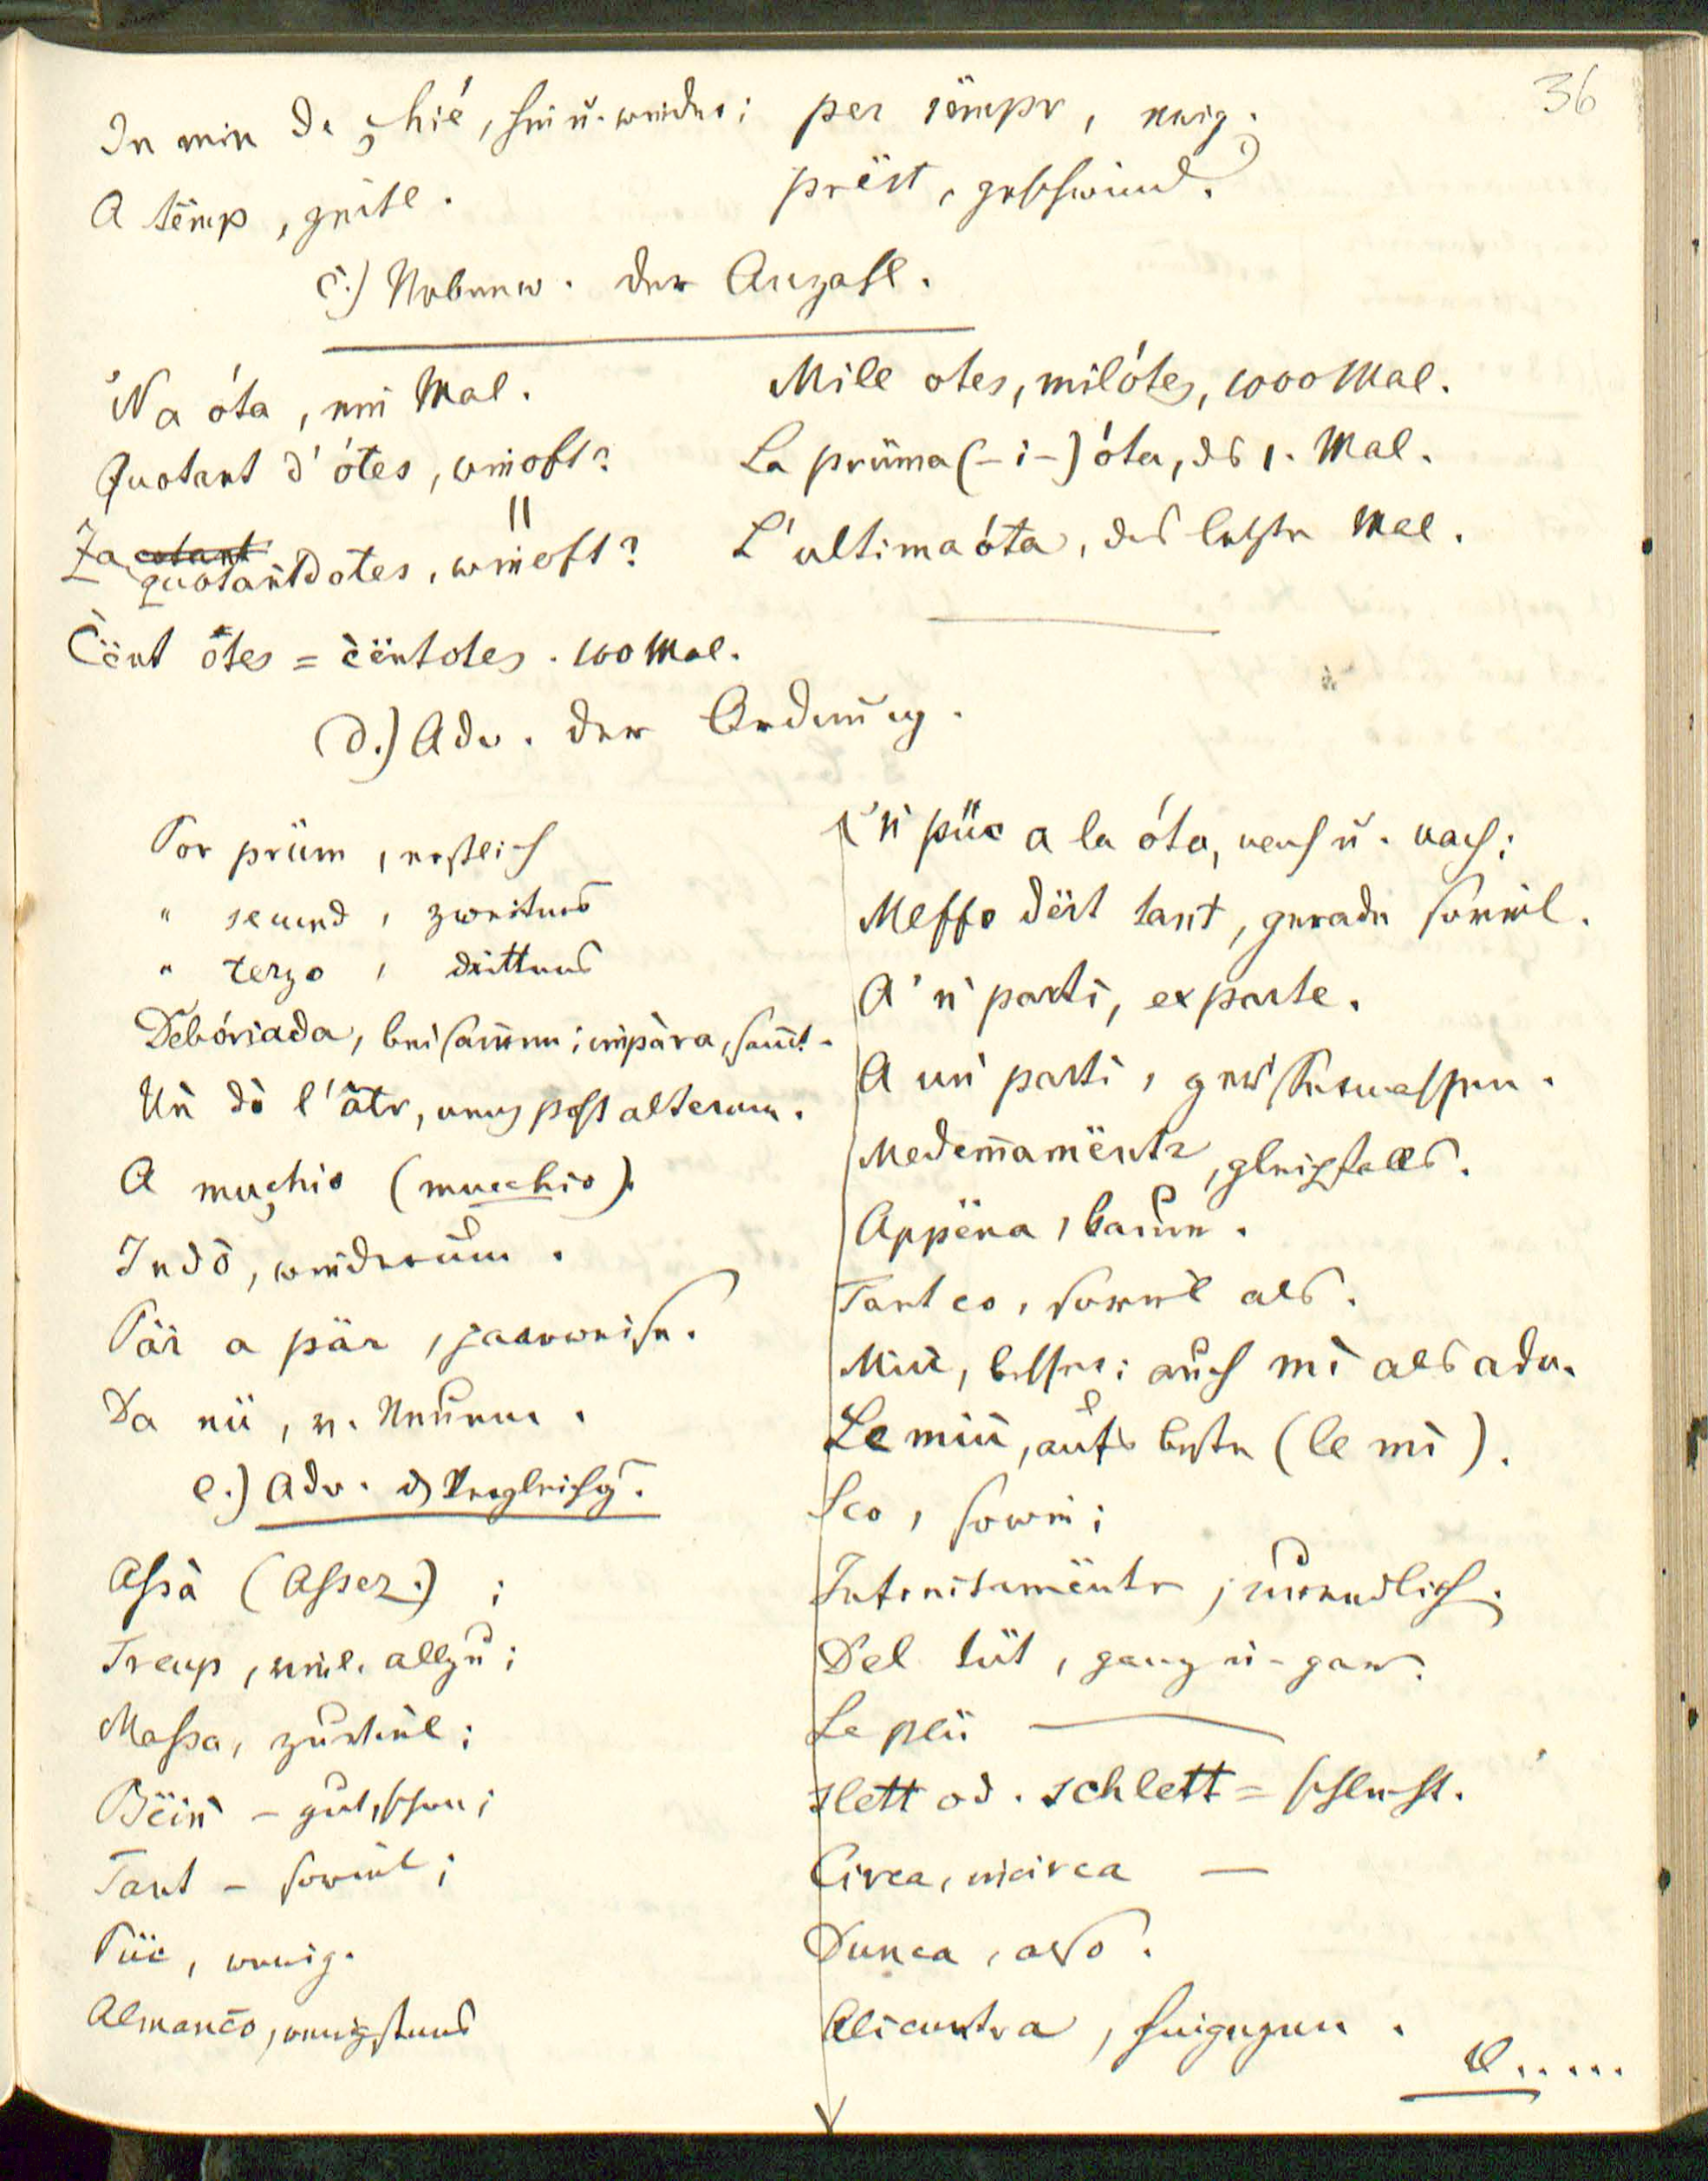 36
In min de çhié, hin u. wieder; per sëmpr, ewig.
A tëmp, zeitl. prëst, geschwind.
c.) Nebenw. der Anzahl.
'Na óta, ein Mal.
Quotant d'ótes, wieoft?
Za quotantdotes, wieoft?
Cënt ötes = cëntotes. 100 Mal.
Mile otes, milótes, 1000 Mal.
La prüma (-i-) óta, ds 1. Mal.
L'ultima óta, das letzte Mal.
d.) Adv. der Ordnung.
Por prüm, erstlich
" secund, zweitens
" terzo, drittens
Debóriada, beisammen; impara, samt.
Uǹ dò l'ätr, unus post alterum.
A muçhio (mucchio).
Indô, wiederum.
Pär a pär, paarweise.
Da nü, v. Neuem.
e.) Adv. d. Vergleichg.
Assà (Assez.);
Treup, viel. allzu;
Massa, zuviel;
Bëiǹ - gut, schon;
Tant - soviel;
Püc, wenig.
Almanco, wenigstens
'ǹ püc a la óta, nach u. nach;
Meffo dërt tant, gerade soviel.
A 'ǹ parti, ex parte.
A uǹ parti, gewissermassen.
Medemamëntr, gleichfalls.
Appëna, kaum.
Tant co, soviel als.
Miù, besser; auch mì als adv.
Le miù, aufs beste (le mì).
Sco, sowie;
Infinitamëntr, unendlich.
Del tüt, ganz u. gar.
Le plü
slett od. schlett = schlecht.
Circa, incirca —
Dunca, also.
Alicuntra, hingegen.
V.....